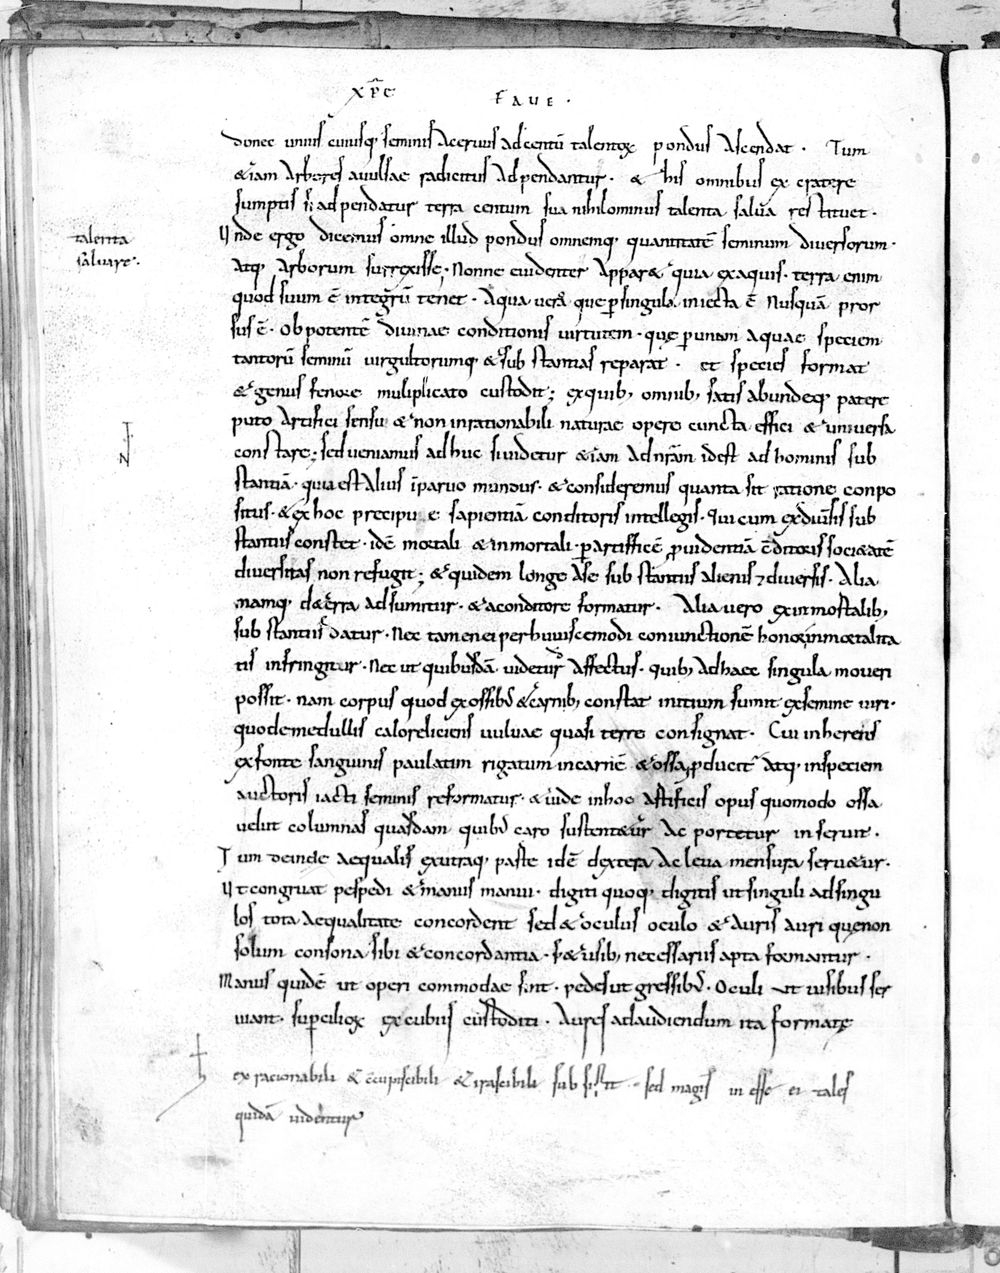 xp̄c FAVE.
donec unius cuiusq; seminis acervus ad centū talentoꝝ pondus ascendat. Tum
&iam arbores avulsae radicitus adpendantur. & his omnibus ex cratere
sumptis si adpendatur terra centum sua nihilominus talenta salva restituet.
talenta
salvare.
Unde ergo dicemus omne illud pondus omnemq; quantitatē seminum diversorum.
atq; arborum surrexisse. Nonne evidenter appar& quia ex aquis. terra enim
quod suum ē integrū tenet. Aqua vera que ꝑ singula iniecta ē nusquā pror
sus ē. Ob potentē divinae conditionis virtutem. que ꝑ unam aquae speciem
tantorū seminū virgultorumq; & substantias reparat. et species format
& genus fenore muliplicato custodit; ex quib; omnib; satis abundeq; patere
puto artifici sensu & non inrationabili naturae opere cuncta effici & universa
constare; sed veniamus adhuc si videtur &iam ad nr̄am idest ad hominis sub
stantiā. quia est alius ī parvo mundus. & consideremus quanta sit ratione conpo
situs. & ex hoc precipue sapientiā conditoris intellegis. Qui cum ex divsis sub
stantiis constet. idē mortali & inmortali. ꝑ artificē providentiā cditoris soci&atē
diversitas non refugit; & quidem longe a se substantiis alienis 7 diversis. Alia
namq; d& erra adsumitur. & a conditore formatur. Alia vero ex inmortalib;
substantiis datur. Nec tamen ei per huiuscemodi coniunctionē honoꝝ inmortalita
tis infringitur. Nec ut quibusdā videtur affectus. quib; ad haec singula moveri
possit. nam corpus quod ex ossib; & carnib; constat initium sumit ex semine viri.
quod e medullis calore liciens vulvae quasi terre consignat. Cui inherens
ex fonte sanguinis paulatim rigatum in carnē & ossa producit atq; in speciem
auctoris iacti seminis reformatur. & vide in hoc artificis opus quomodo ossa
velut columnas quasdam quib; caro sustent&ur ac portetur inseruit.
Tum deinde aequalis ex utraq; parte idē dextera ac leva mensura serv&ur.
Ut congruat pes pedi & manus manui. digiti quoq; digitis ut singuli ad singu
los tota aequalitate concordent sed & oculus oculo & auris auri que non
solum consona sibi & concordantia. s& usib; necessariis apta formantur.
Manus quidē ut operi commodae sint. pedes ut gressib;. Oculi ut visibus ser
viant. supercilioꝝ excubiis custoditi. Aures ad audiendum ita formate
ex racionabili & cupiscibili & irascibili subsistit. sed magis in esse ei tales
quidā videntur